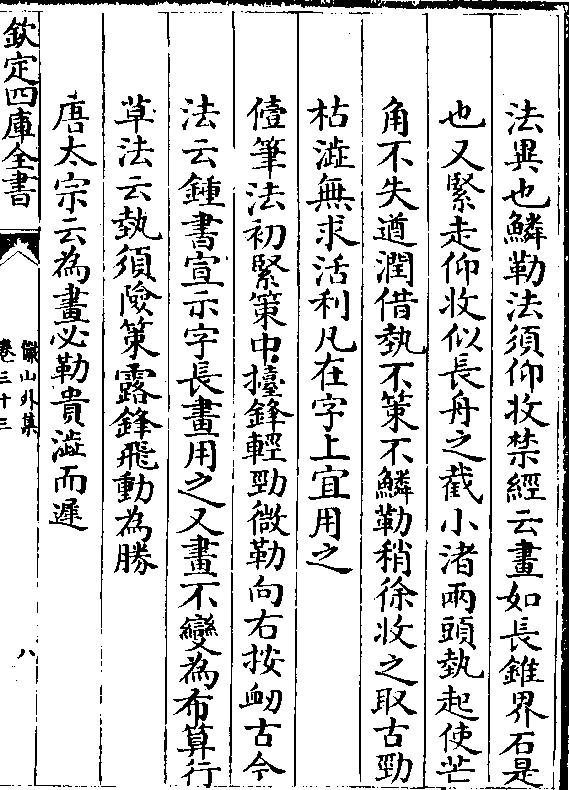 法異也鱗勒法須仰收禁經云畫如長錐界石是
也又緊走仰收似長舟之截小渚兩頭埶起使芒
角不失遒潤借埶不策不鱗勒稍徐收之取古勁
枯澁無求活利凡在字上宜用之
僿筆法初緊策中擡鋒輕勁微勒向右按衂古今
法云鍾書宣示字長畫用之又畫不變為布算行
草法云埶須險策露鋒飛動為勝
唐太宗云為畫必勒貴澁而遲
欽定四庫全書
儼山外集
卷三十三
八